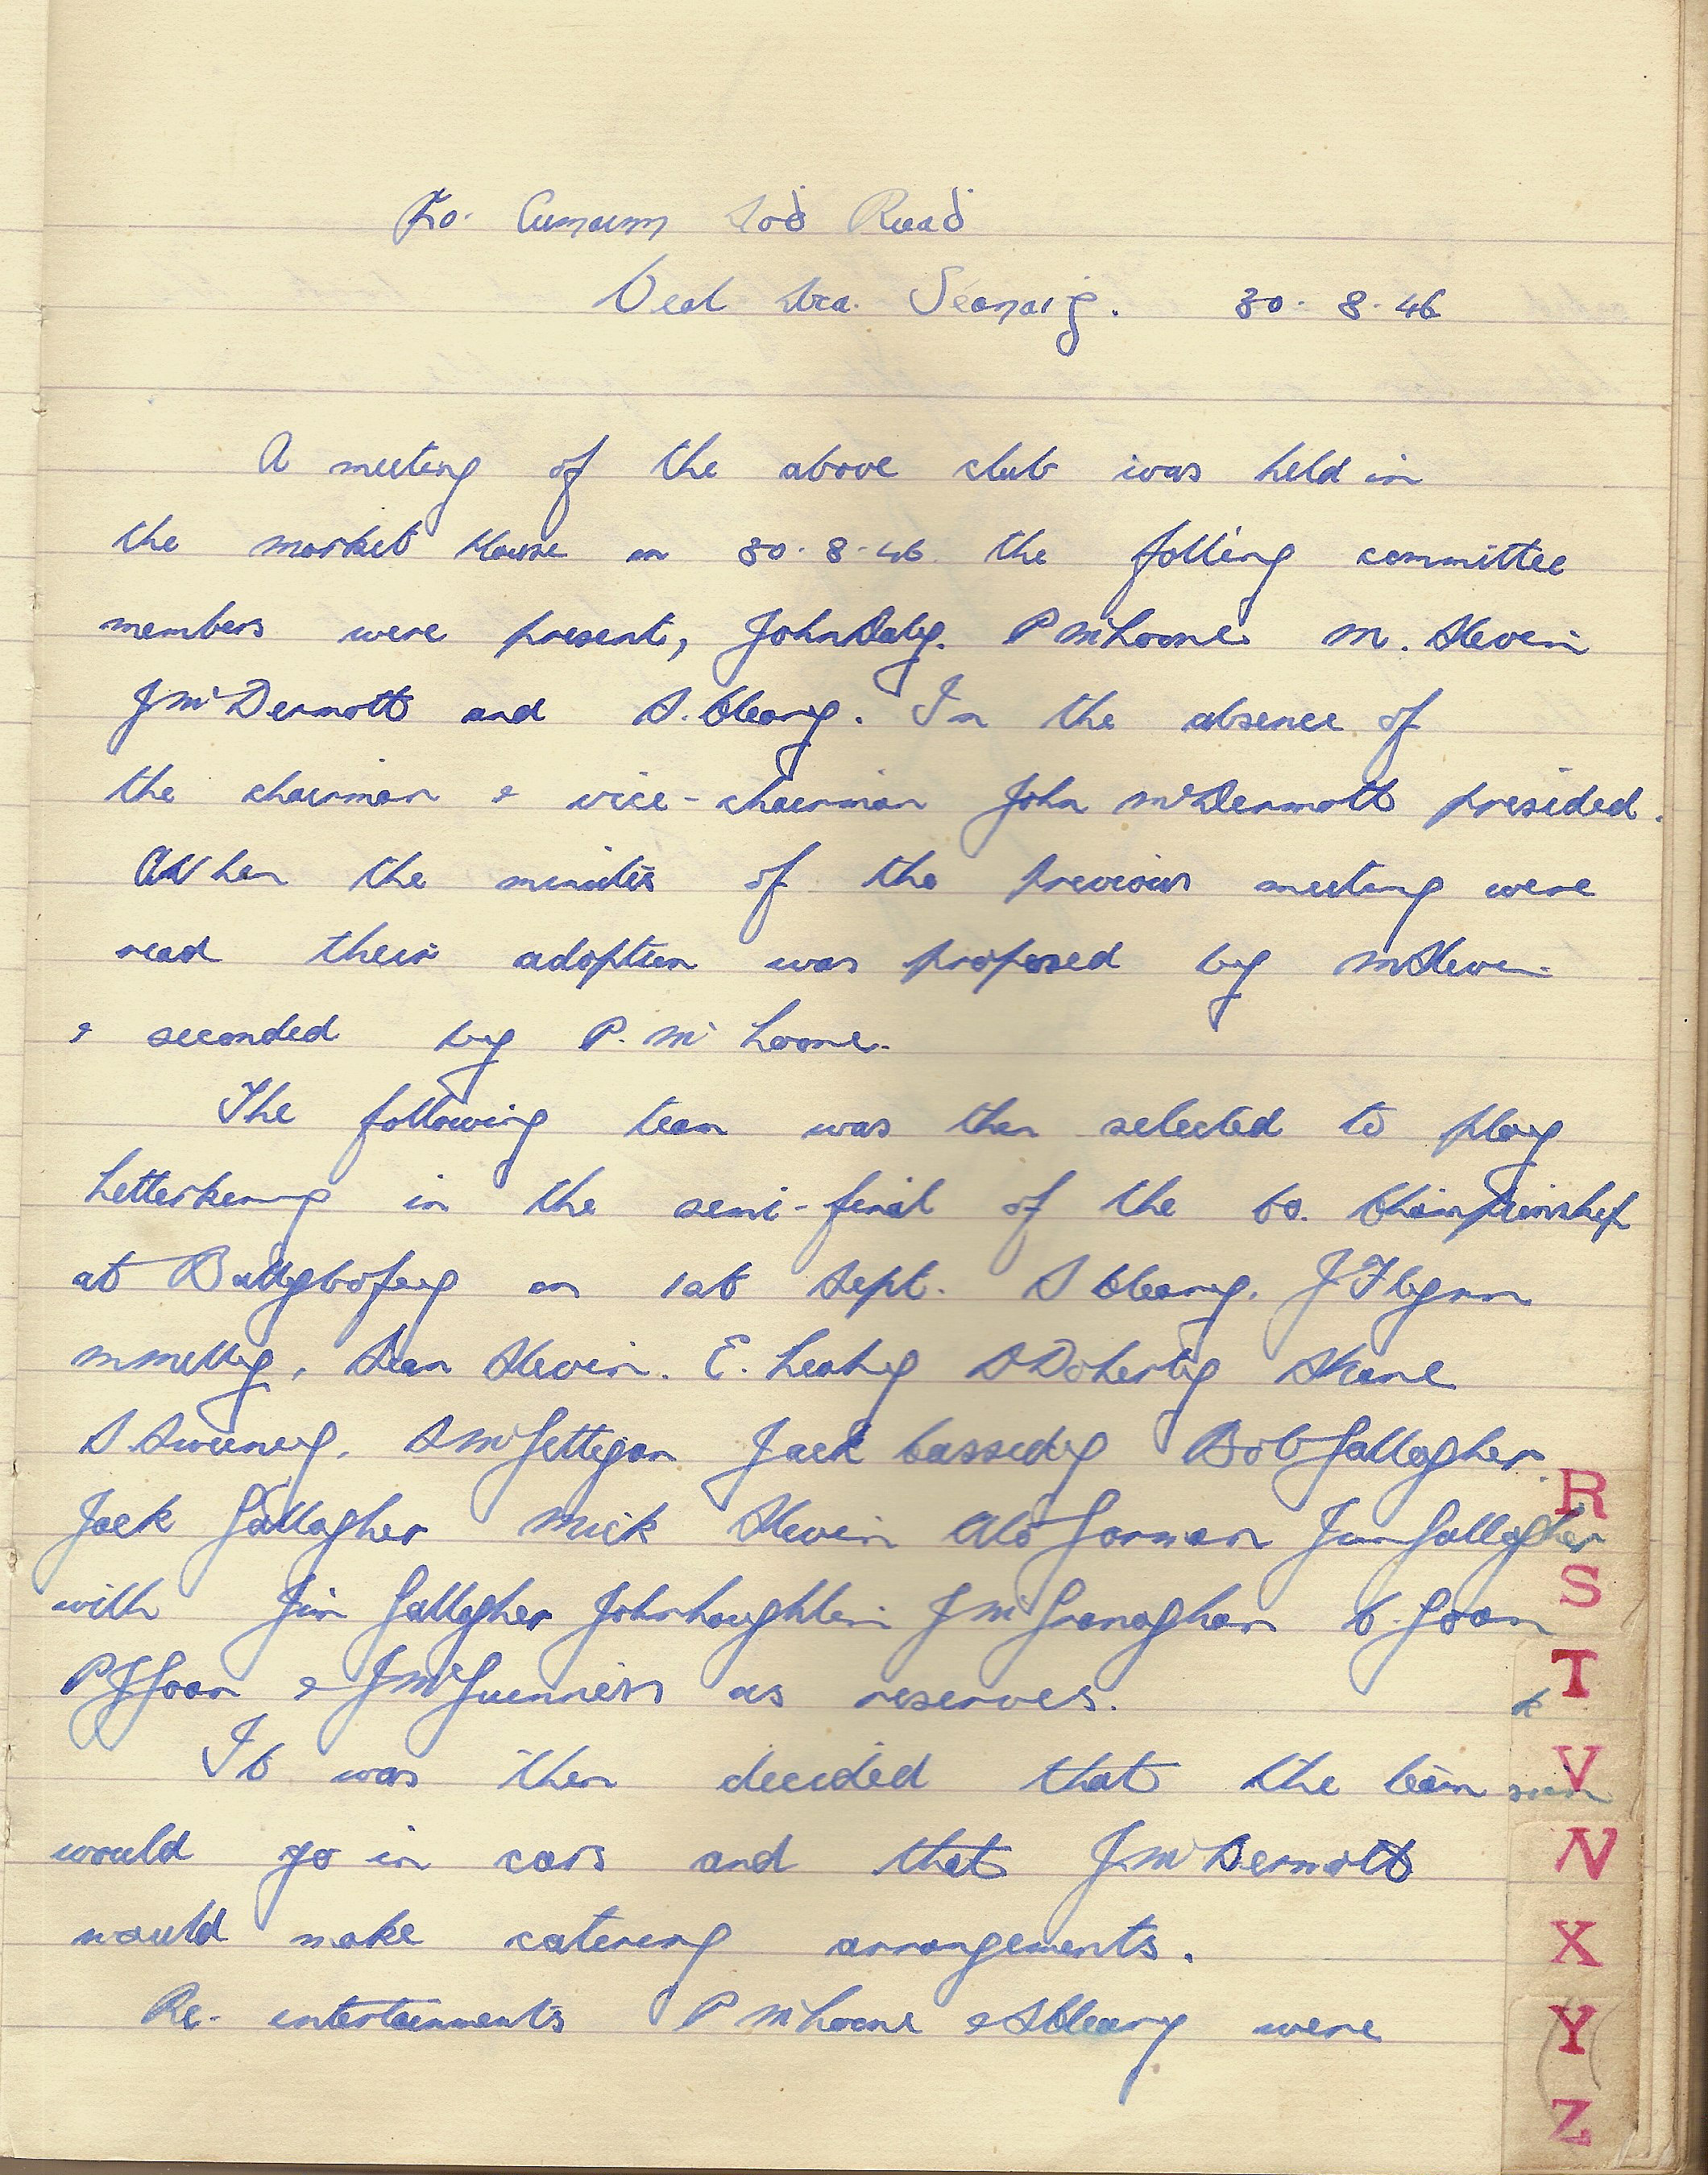 Cumann Aoḋ Ruaḋ
Beal Áṫa Seanaiġ. 30. 8. 46
A meeting of the above club was held in
the market House on 30. 8. 46 the folling committee
members were present, John Daly. P McLoone. M. Slevin
J McDermott and S. Cleary. In the absence of
the chairman & vice-chairman John McDermott presided.
When the minutes of the previous meeting were
read their adoption was proposed by M Slevin
& seconded by P. Mc Loone.
The following team was then selected to play
Letterkenny in the semi-final of the Co. Championship
at Ballybofey on 1st Sept. S Cleary. J Flynn
M Melly, Sean Slevin. E. Leahy S Doherty S Kane
S. Sweeney. S McGettigan Jack Cassidy Bob Gallagher
Jack Gallagher Mick Slevin Ml O Gorman Jim Gallagher
with Jim Gallagher John Loughlin J McGranaghan C. Goan
P J Goan & J McGuinness as reserves.
It was then decided that the team
would go in cars and that J. McDermott
would make catering arrangements.
Re. entertainments P McLoone & S Cleary were
R
S
T
V
X
Y
Z